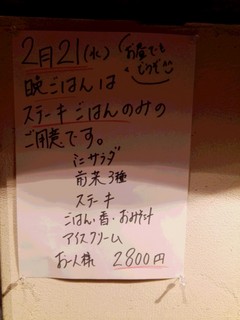 2月21(水)
お昼でも
どうぞ
晩ごはんは
ステーキごはんのみの
ご用意です。
ミニサラダ
前菜3種
ステーキ
ごはん・香・おみそ汁
アイスクリーム
お一人様 2800円